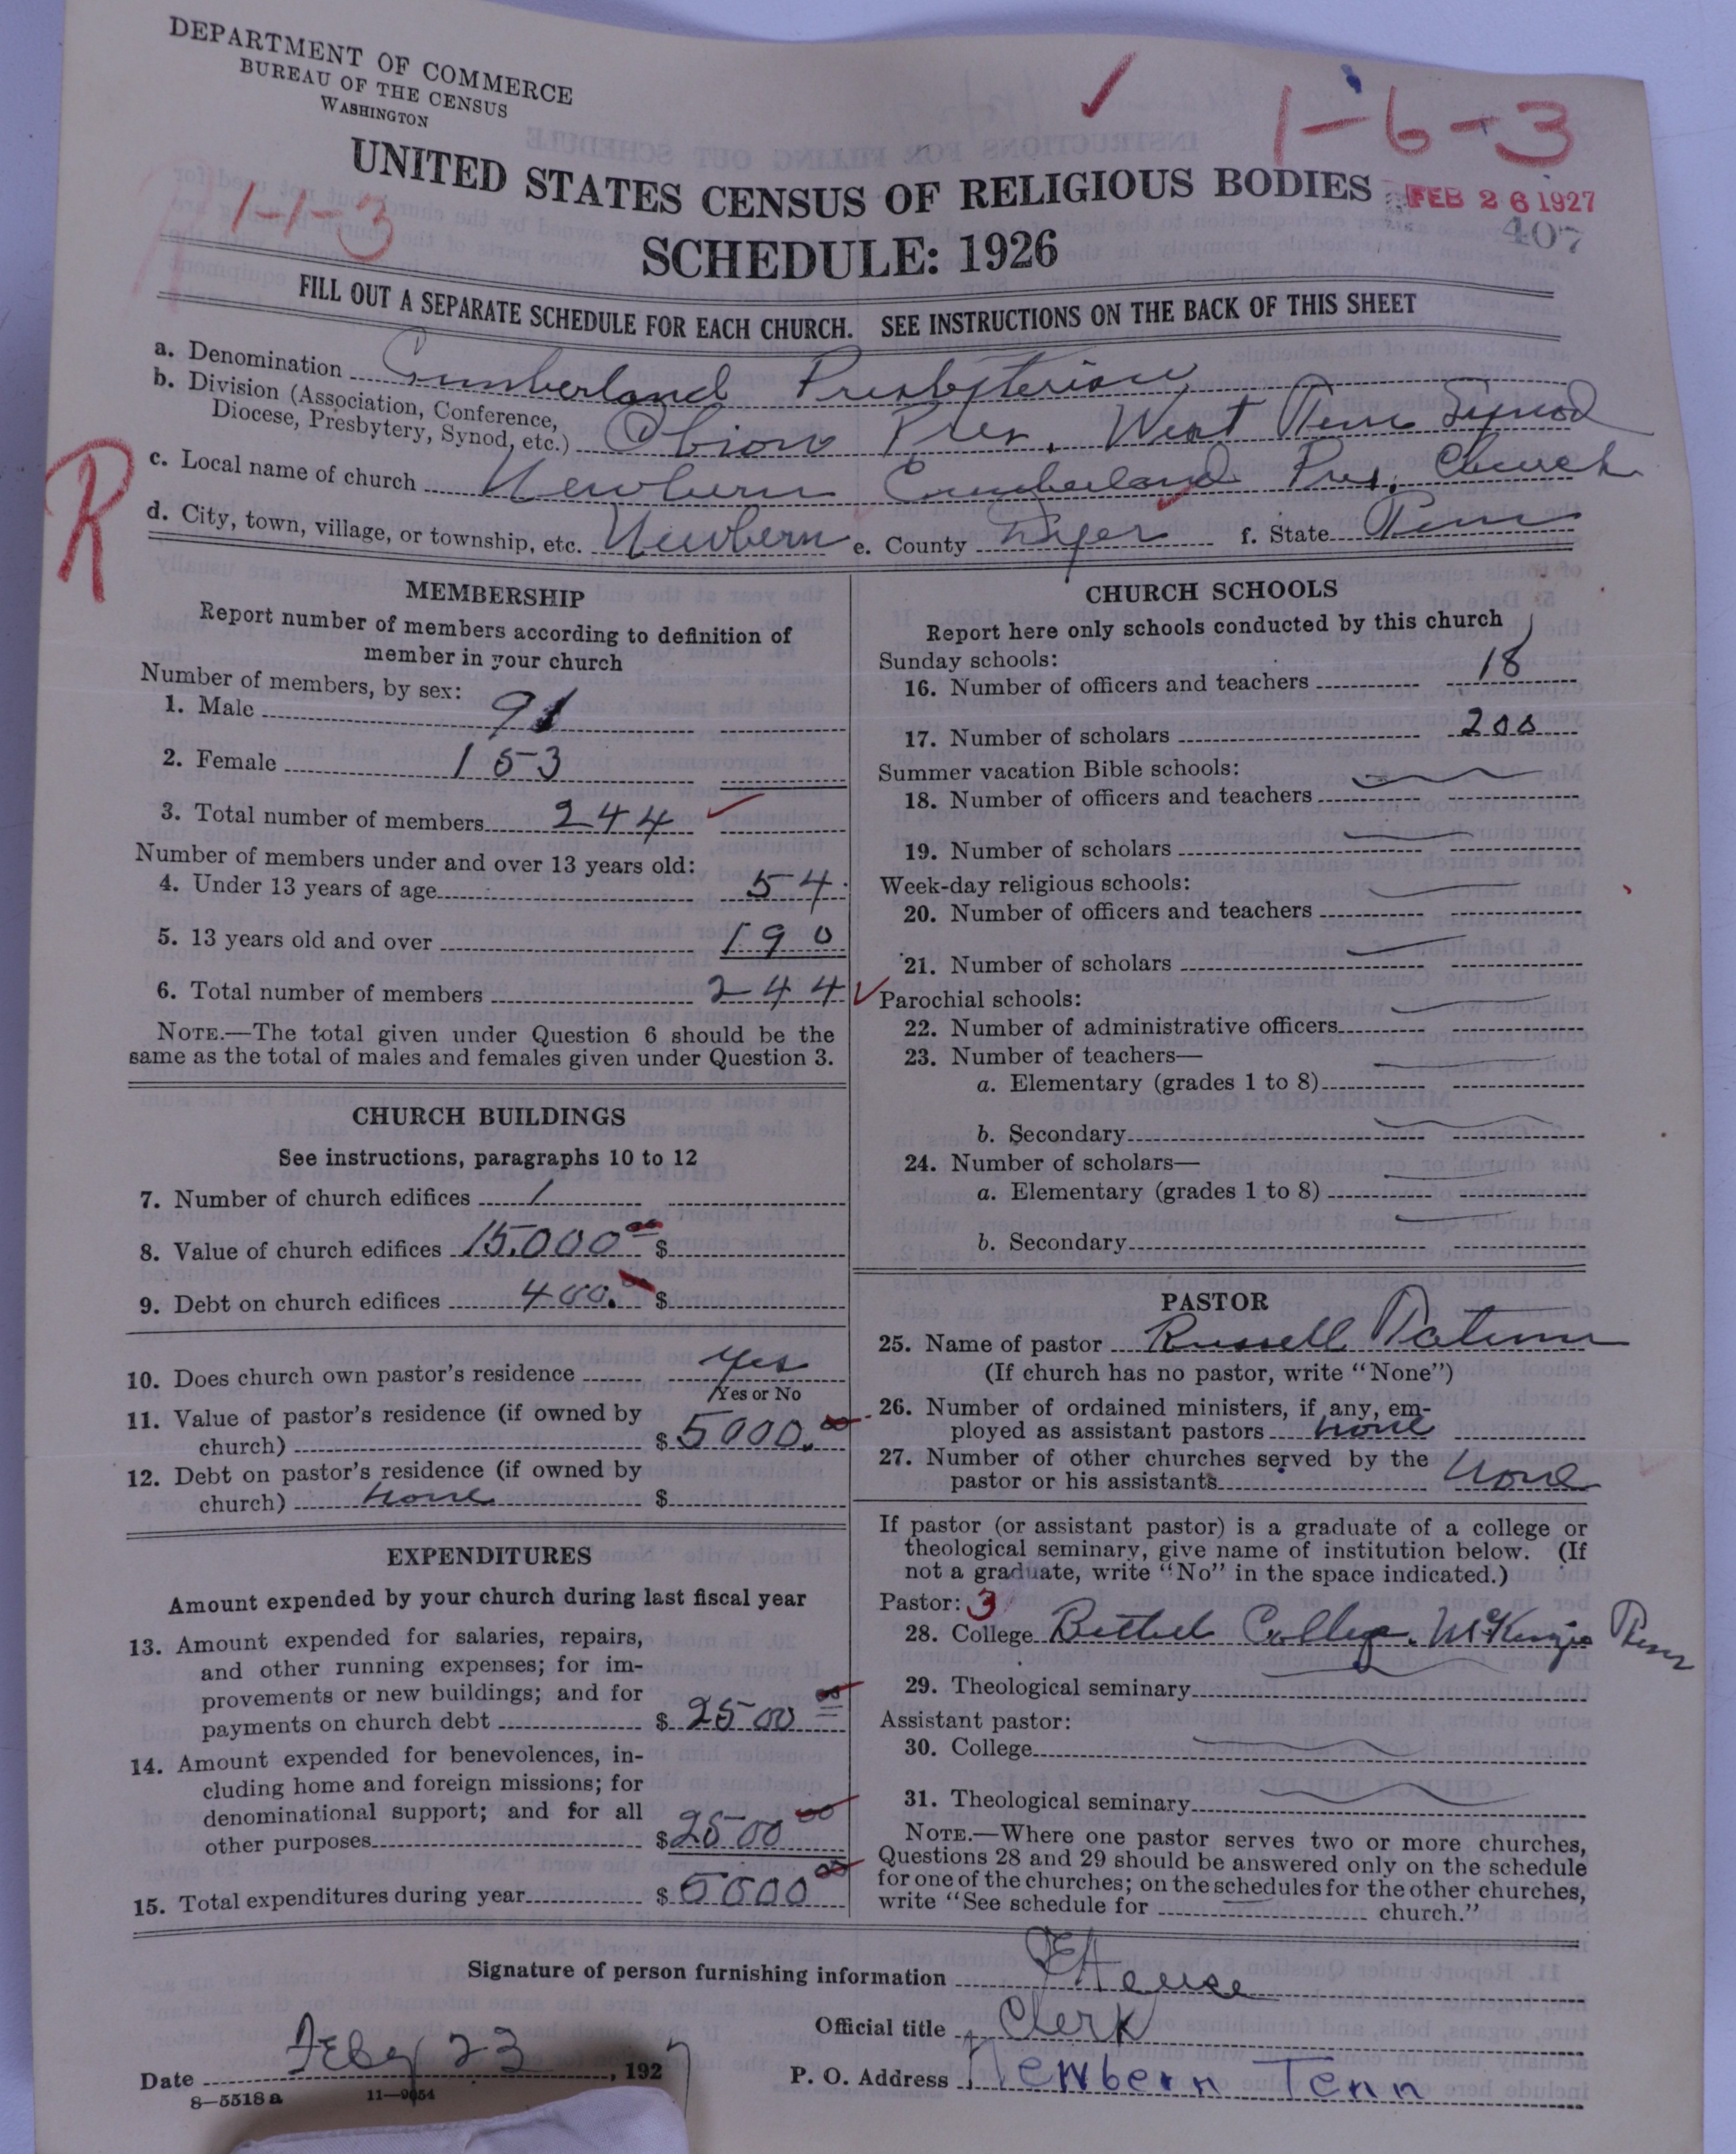 DEPARTMENT OF COMMERCE
BUREAU OF THE CENSUS
WASHINGTON
1-6-3
UNITED STATES CENSUS OF RELIGIOUS BODIES
FEB 26 1927
1-1-3
407
SCHEDULE: 1926
FILL OUT A SEPARATE SCHEDULE FOR EACH CHURCH. SEE INSTRUCTIONS ON THE BACK OF THIS SHEET
a. Denomination Cumberland Presbyterian
b. Division (Association, Conference,
Diocese, Presbytery, Synod, etc.) Obion Pres. West Tenn Synod
R
c. Local name of church Newbern Cumberland Pres. Church
d. City, town, village, or township, etc. Newbern e. County Dyer f. State Tenn
MEMBERSHIP
Report number of members according to definition of
member in your church
Number of members, by sex:
1. Male 91
2. Female 153
3. Total number of members 244
Number of members under and over 13 years old:
4. Under 13 years of age 54
5. 13 years old and over 190
6. Total number of members 244
NOTE.—The total given under Question 6 should be the
same as the total of males and females given under Question 3.
CHURCH BUILDINGS
See instructions, paragraphs 10 to 12
7. Number of church edifices 1
8. Value of church edifices 15,000 00 $
9. Debt on church edifices 400. $
10. Does church own pastor's residence yes
Yes or No
11. Value of pastor's residence (if owned by
church) $ 5000. 00
12. Debt on pastor's residence (if owned by
church) none $
EXPENDITURES
Amount expended by your church during last fiscal year
13. Amount expended for salaries, repairs,
and other running expenses; for im-
provements or new buildings; and for
payments on church debt $ 2500 00
14. Amount expended for benevolences, in-
cluding home and foreign missions; for
denominational support; and for all
other purposes $ 2500 00
15. Total expenditures during year $ 5000 00
CHURCH SCHOOLS
Report here only schools conducted by this church
Sunday schools:
16. Number of officers and teachers 18
17. Number of scholars 200
Summer vacation Bible schools:
18. Number of officers and teachers
19. Number of scholars
Week-day religious schools:
20. Number of officers and teachers
21. Number of scholars
Parochial schools:
22. Number of administrative officers
23. Number of teachers—
a. Elementary (grades 1 to 8)
b. Secondary
24. Number of scholars—
a. Elementary (grades 1 to 8)
b. Secondary
PASTOR
25. Name of pastor Russell Tatum
(If church has no pastor, write "None")
26. Number of ordained ministers, if any, em-
ployed as assistant pastors none
27. Number of other churches served by the
pastor or his assistants none
If pastor (or assistant pastor) is a graduate of a college or
theological seminary, give name of institution below. (If
not a graduate, write "No" in the space indicated.)
Pastor: 3
28. College Bethel College. McKenzie Tenn
29. Theological seminary
Assistant pastor:
30. College
31. Theological seminary
NOTE.—Where one pastor serves two or more churches,
Questions 28 and 29 should be answered only on the schedule
for one of the churches; on the schedules for the other churches,
write "See schedule for church."
Signature of person furnishing information
Official title Clerk
Date Feby 23, 1927
P. O. Address Newbern Tenn
8—5518 a 11—9054